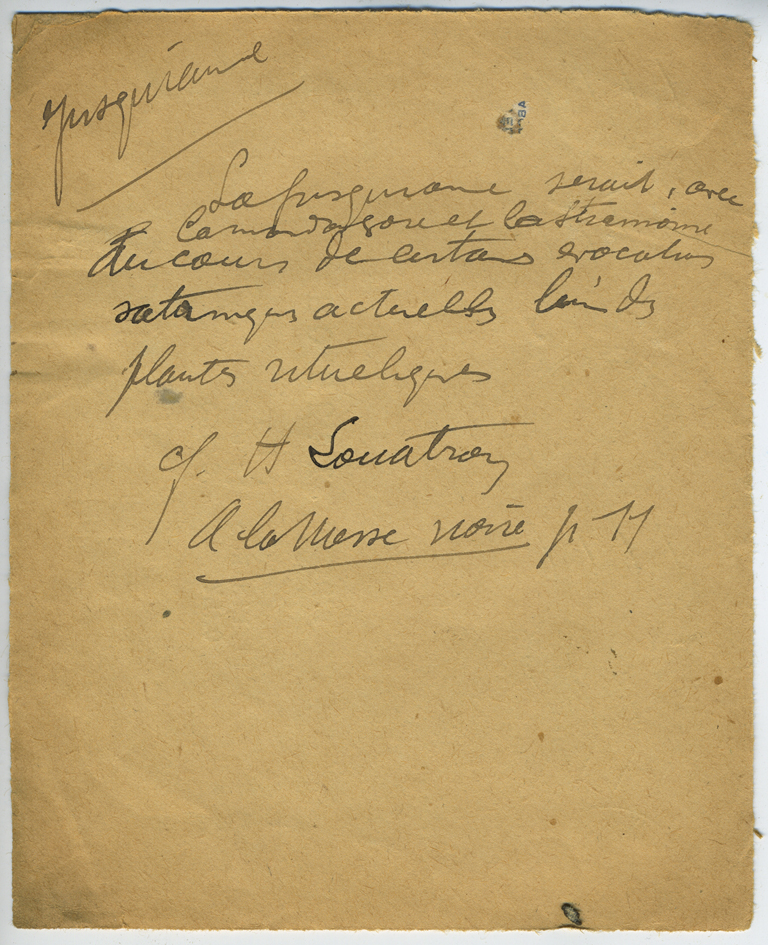 Jusquiame
La jusquiame serait, avec
la mandragore et la stramoine
au cours de certaines evocations
sataniques actuelles l'une des
plantes rituéliques
cf. H
A la Messe noire p 11